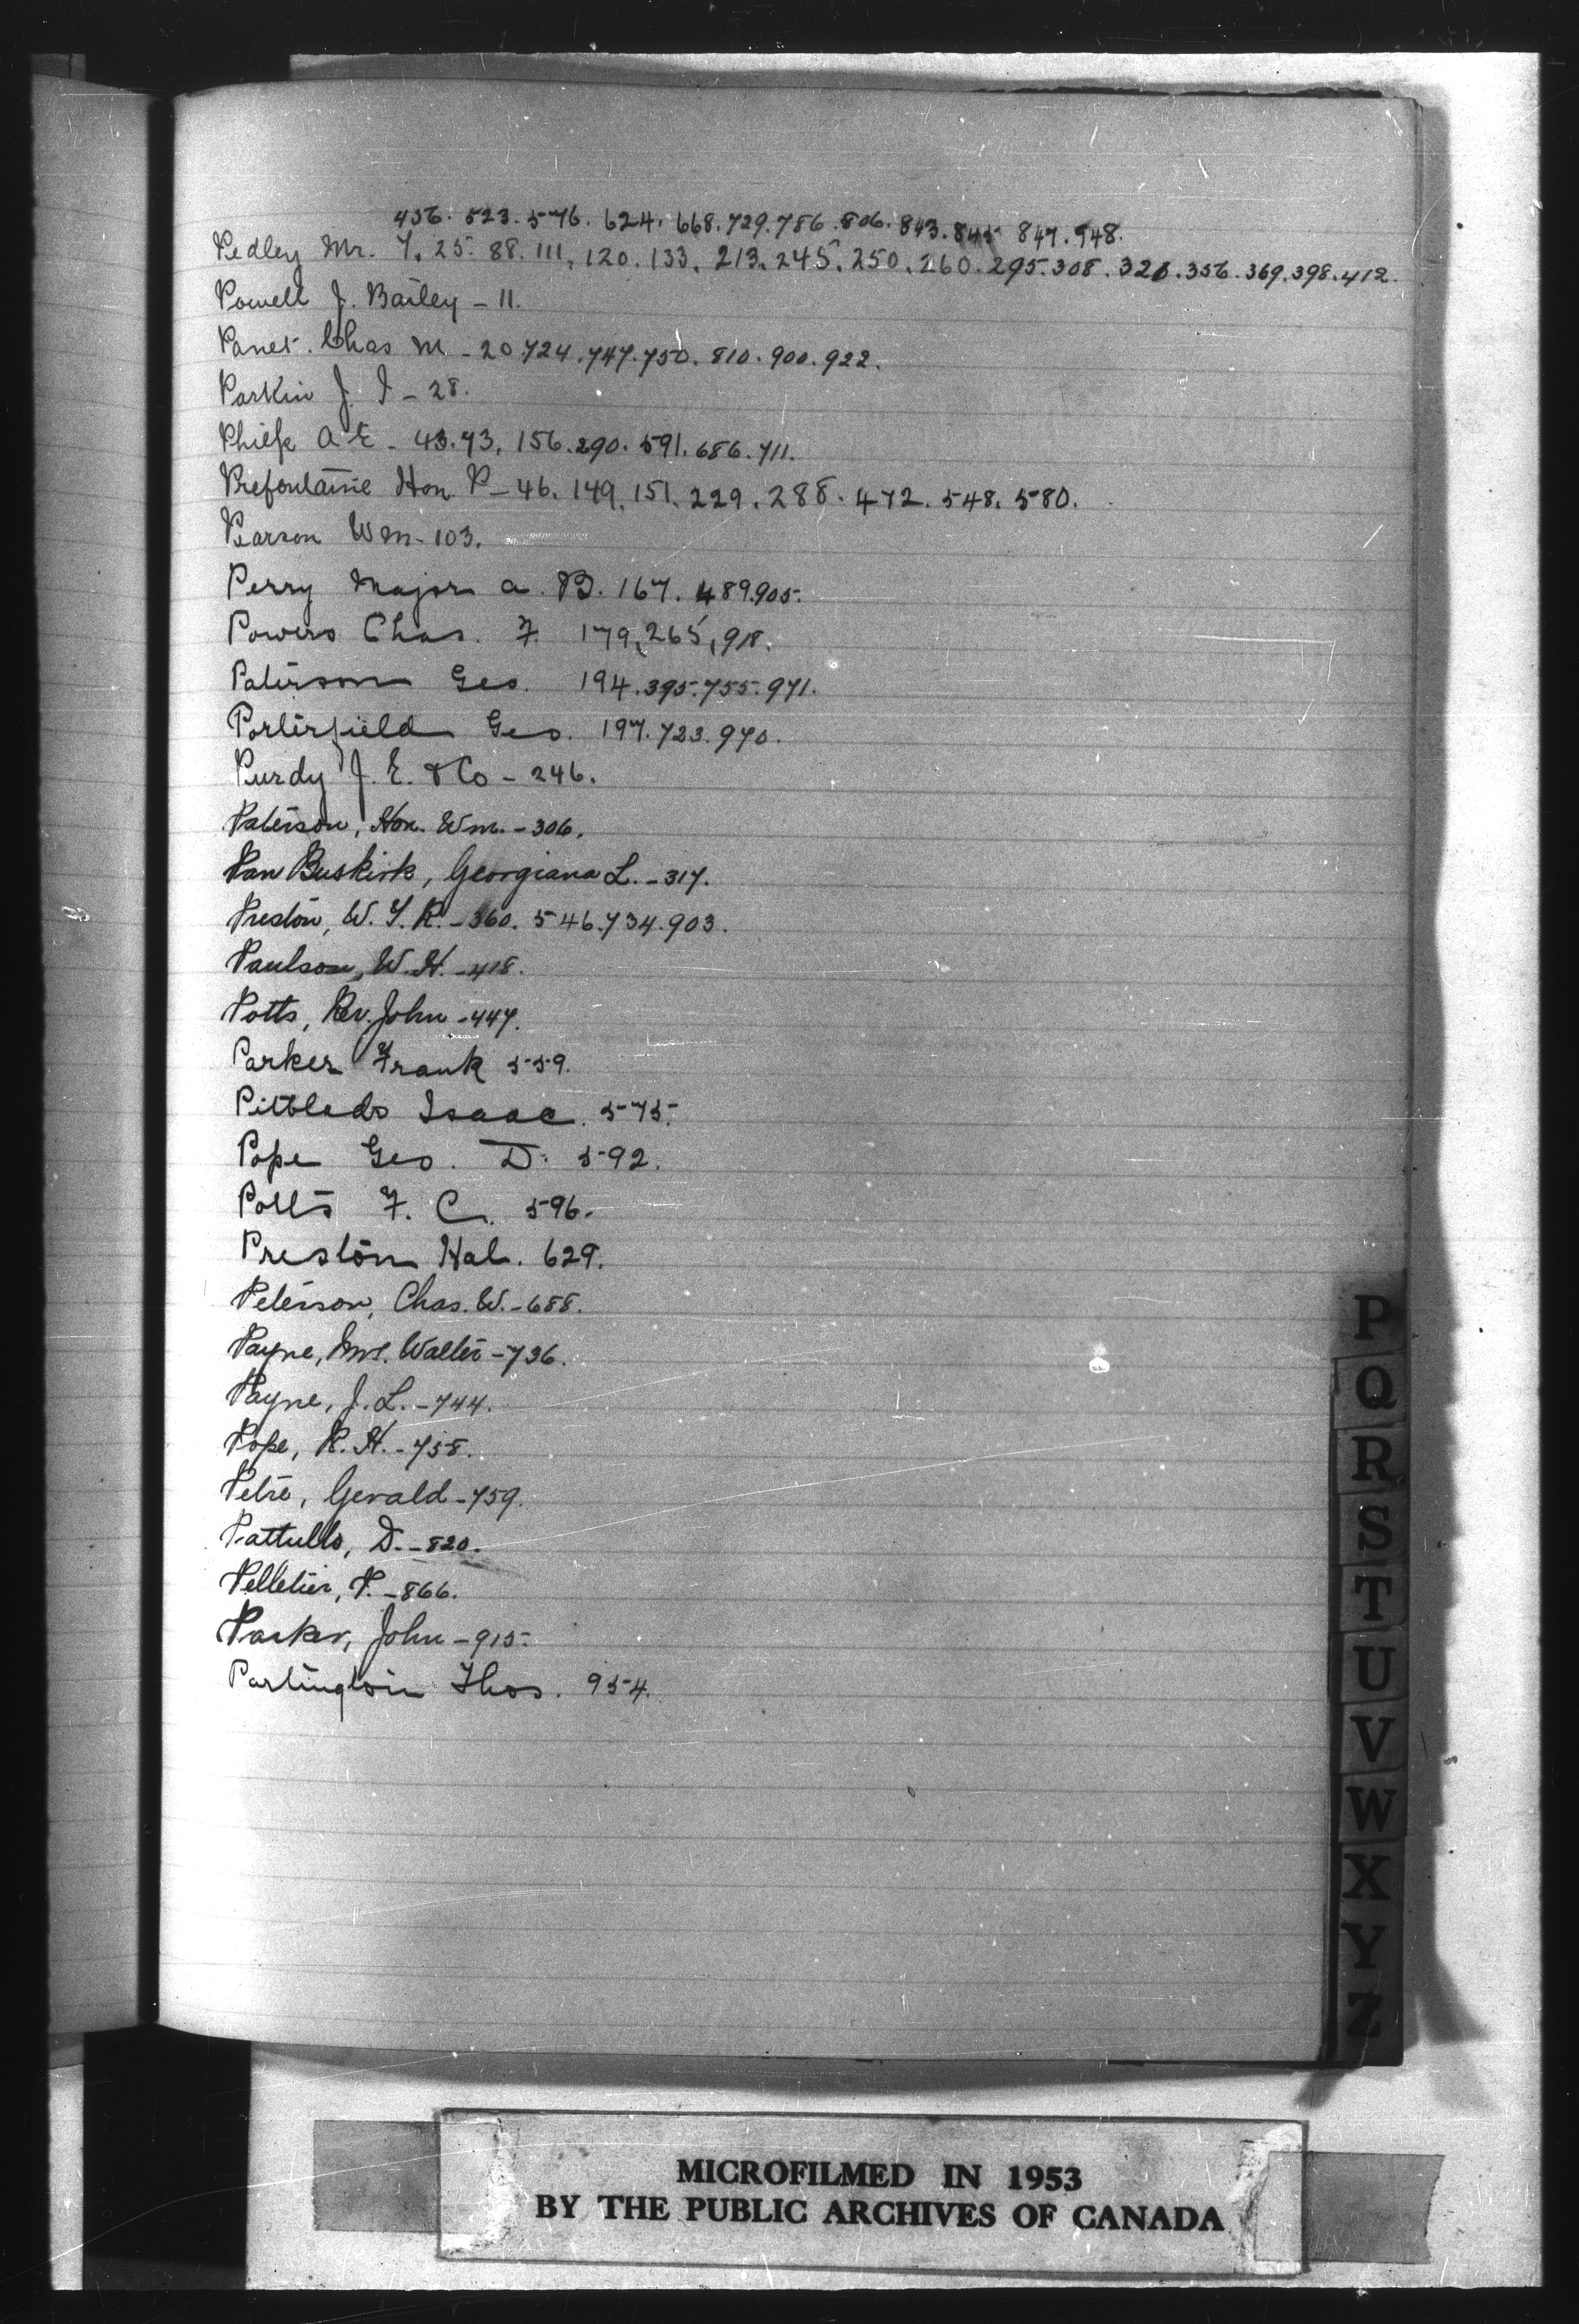 456. 523. 576. 624. 668. 729. 786. 806. 843. 845 847. 948.
Pedley Mr. 7, 25. 88. 111, 120. 133. 213. 245. 250. 260. 295. 308. 326. 356. 369. 398. 412.
Powell J. Bailey - 11.
Panet. Chas M - 20 724. 747. 750. 810. 900. 922.
Parkin J. I - 28.
Philp A E - 43. 73. 156. 290. 591. 686. 711.
Prefontaine Hon. P - 46. 149. 151. 229. 288. 472. 548. 580.
Pearson Wm - 103.
Perry Major A. B. 167. 489. 905.
Powers Chas. F. 179, 265, 918.
Paterson Geo. 194. 395. 755. 971.
Porterfield Geo. 197. 723. 970.
Purdy J. E. & Co - 246.
Paterson, Hon. Wm. - 306.
Van Buskirk, Georgiana L. - 317.
Preston, W. T. R. - 360. 546. 734. 903.
Paulson, W. H. - 418.
Potts, Rev. John - 447.
Parker Frank 559.
Pitblado Isaac. 575.
Pope Geo. D. 592.
Potts F. C. 596.
Preston Hal. 629.
Peterson, Chas. W. - 688.
Payne, Mrs. Walter - 736.
Payne, J. L. - 744.
Pope, R. H. - 758.
Petre, Gerald - 759.
Pattullo, D. - 820.
Pelletier, P. - 866.
Parker, John - 915.
Partington Thos. 954.
P
Q
R
S
T
U
V
W
X
Y
Z
MICROFILMED IN 1953
BY THE PUBLIC ARCHIVES OF CANADA